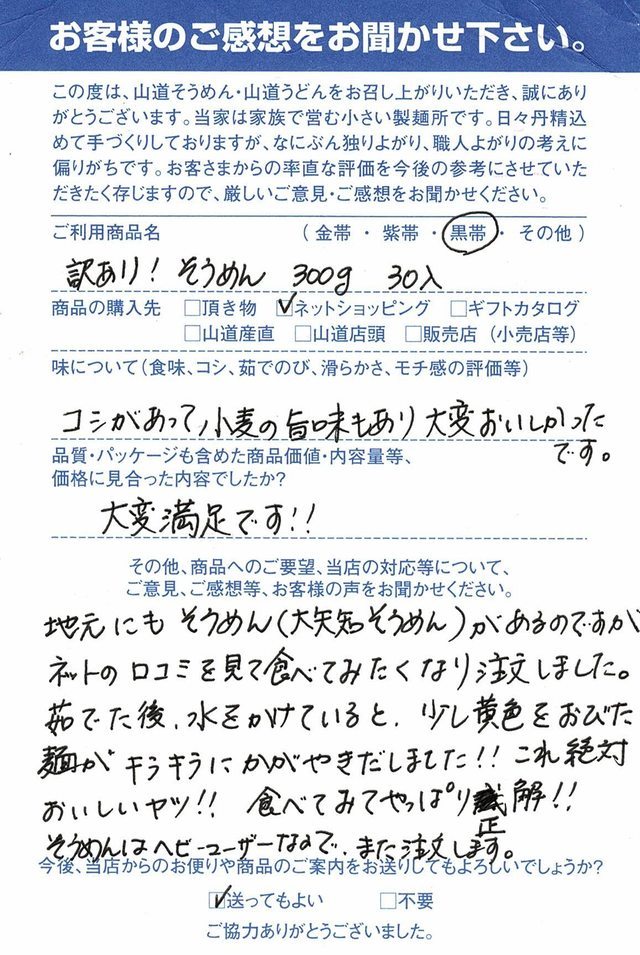 お客様のご感想をお聞かせ下さい。
この度は、山道そうめん・山道うどんをお召し上がりいただき、誠にあり
がとうございます。当家は家族で営む小さい製麺所です。日々丹精込
めて手づくりしておりますが、なにぶん独りよがり、職人よがりの考えに
偏りがちです。お客さまからの率直な評価を今後の参考にさせていた
だきたく存じますので、厳しいご意見・ご感想をお聞かせください。
ご利用商品名 （ 金帯 ・ 紫帯 ・ 黒帯 ・ その他 ）
訳あり! そうめん 300g 30入
商品の購入先 □頂き物 ☑ネットショッピング □ギフトカタログ
□山道産直 □山道店頭 □販売店（小売店等）
味について（食味、コシ、茹でのび、滑らかさ、モチ感の評価等）
コシがあって、小麦の旨味もあり 大変おいしかった
です。
品質・パッケージも含めた商品価値・内容量等、
価格に見合った内容でしたか?
大変満足です!!
その他、商品へのご要望、当店の対応等について、
ご意見、ご感想等、お客様の声をお聞かせください。
地元にも そうめん(大矢知そうめん)があるのですが
ネットの口コミを見て食べてみたくなり注文しました。
茹でた後、水をかけていると、少し黄色をおびた
麺が キラキラにかがやきだしました!! これ絶対
おいしいヤツ!! 食べてみてやっぱり正解!!
そうめんはヘビーユーザーなので、また注文します。
今後、当店からのお便りや商品のご案内をお送りしてもよろしいでしょうか?
☑送ってもよい □不要
ご協力ありがとうございました。